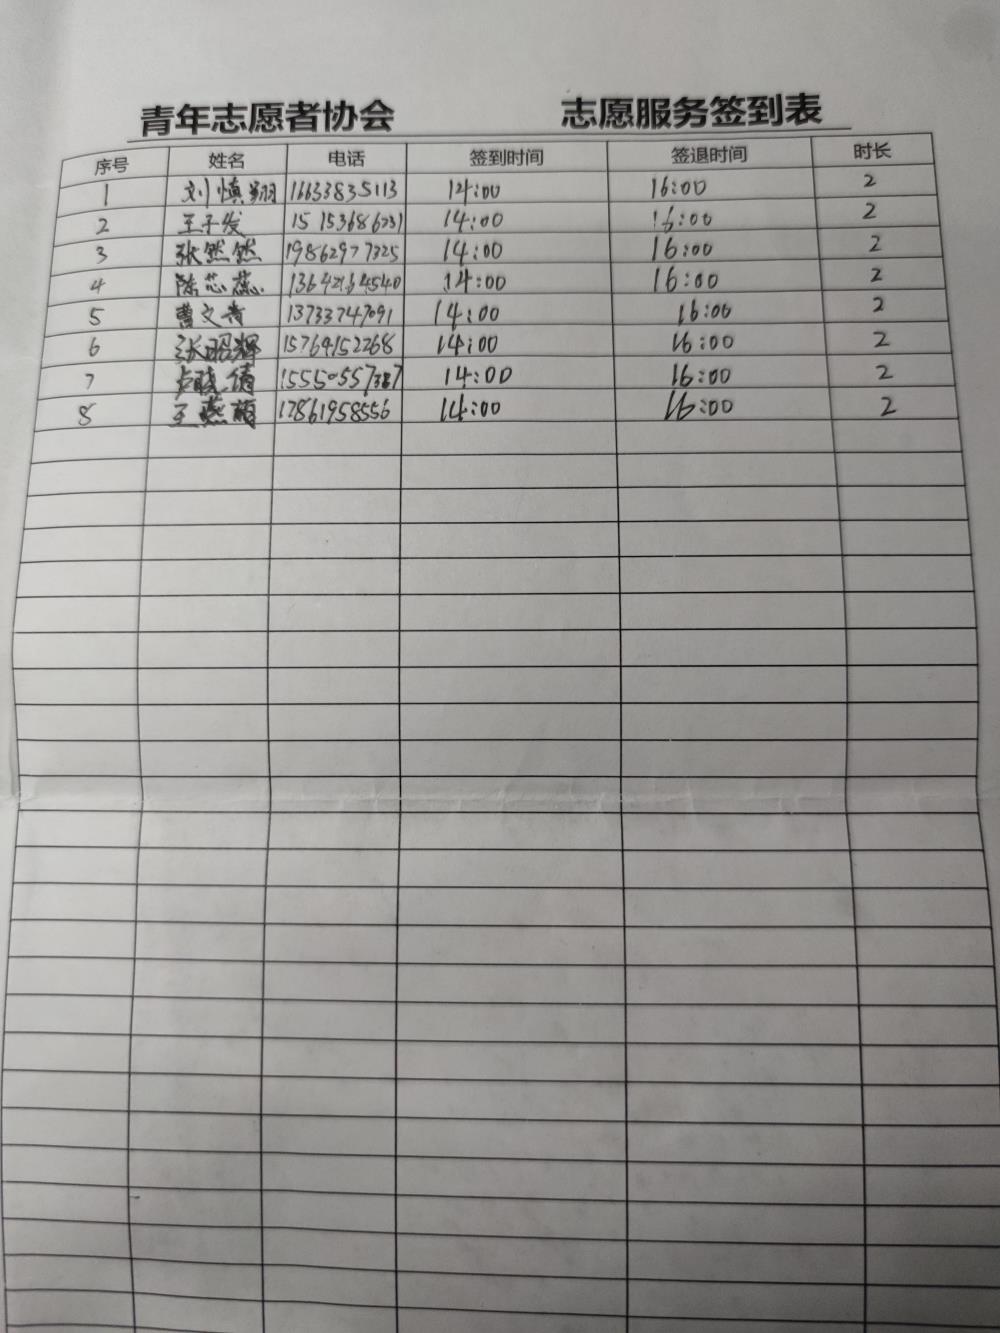 青年志愿者协会 志愿服务签到表
序号 姓名 电话 签到时间 签退时间 时长
1 刘慎翔 16633835113 14:00 16:00 2
2 王子发 15153686231 14:00 16:00 2
3 张然然 19862977325 14:00 16:00 2
4 陈芯蕊 13642164540 14:00 16:00 2
5 曹文青 13733747091 14:00 16:00 2
6 张昭辉 15764152268 14:00 16:00 2
7 卢晓倩 15550557387 14:00 16:00 2
8 王燕 17861958556 14:00 16:00 2